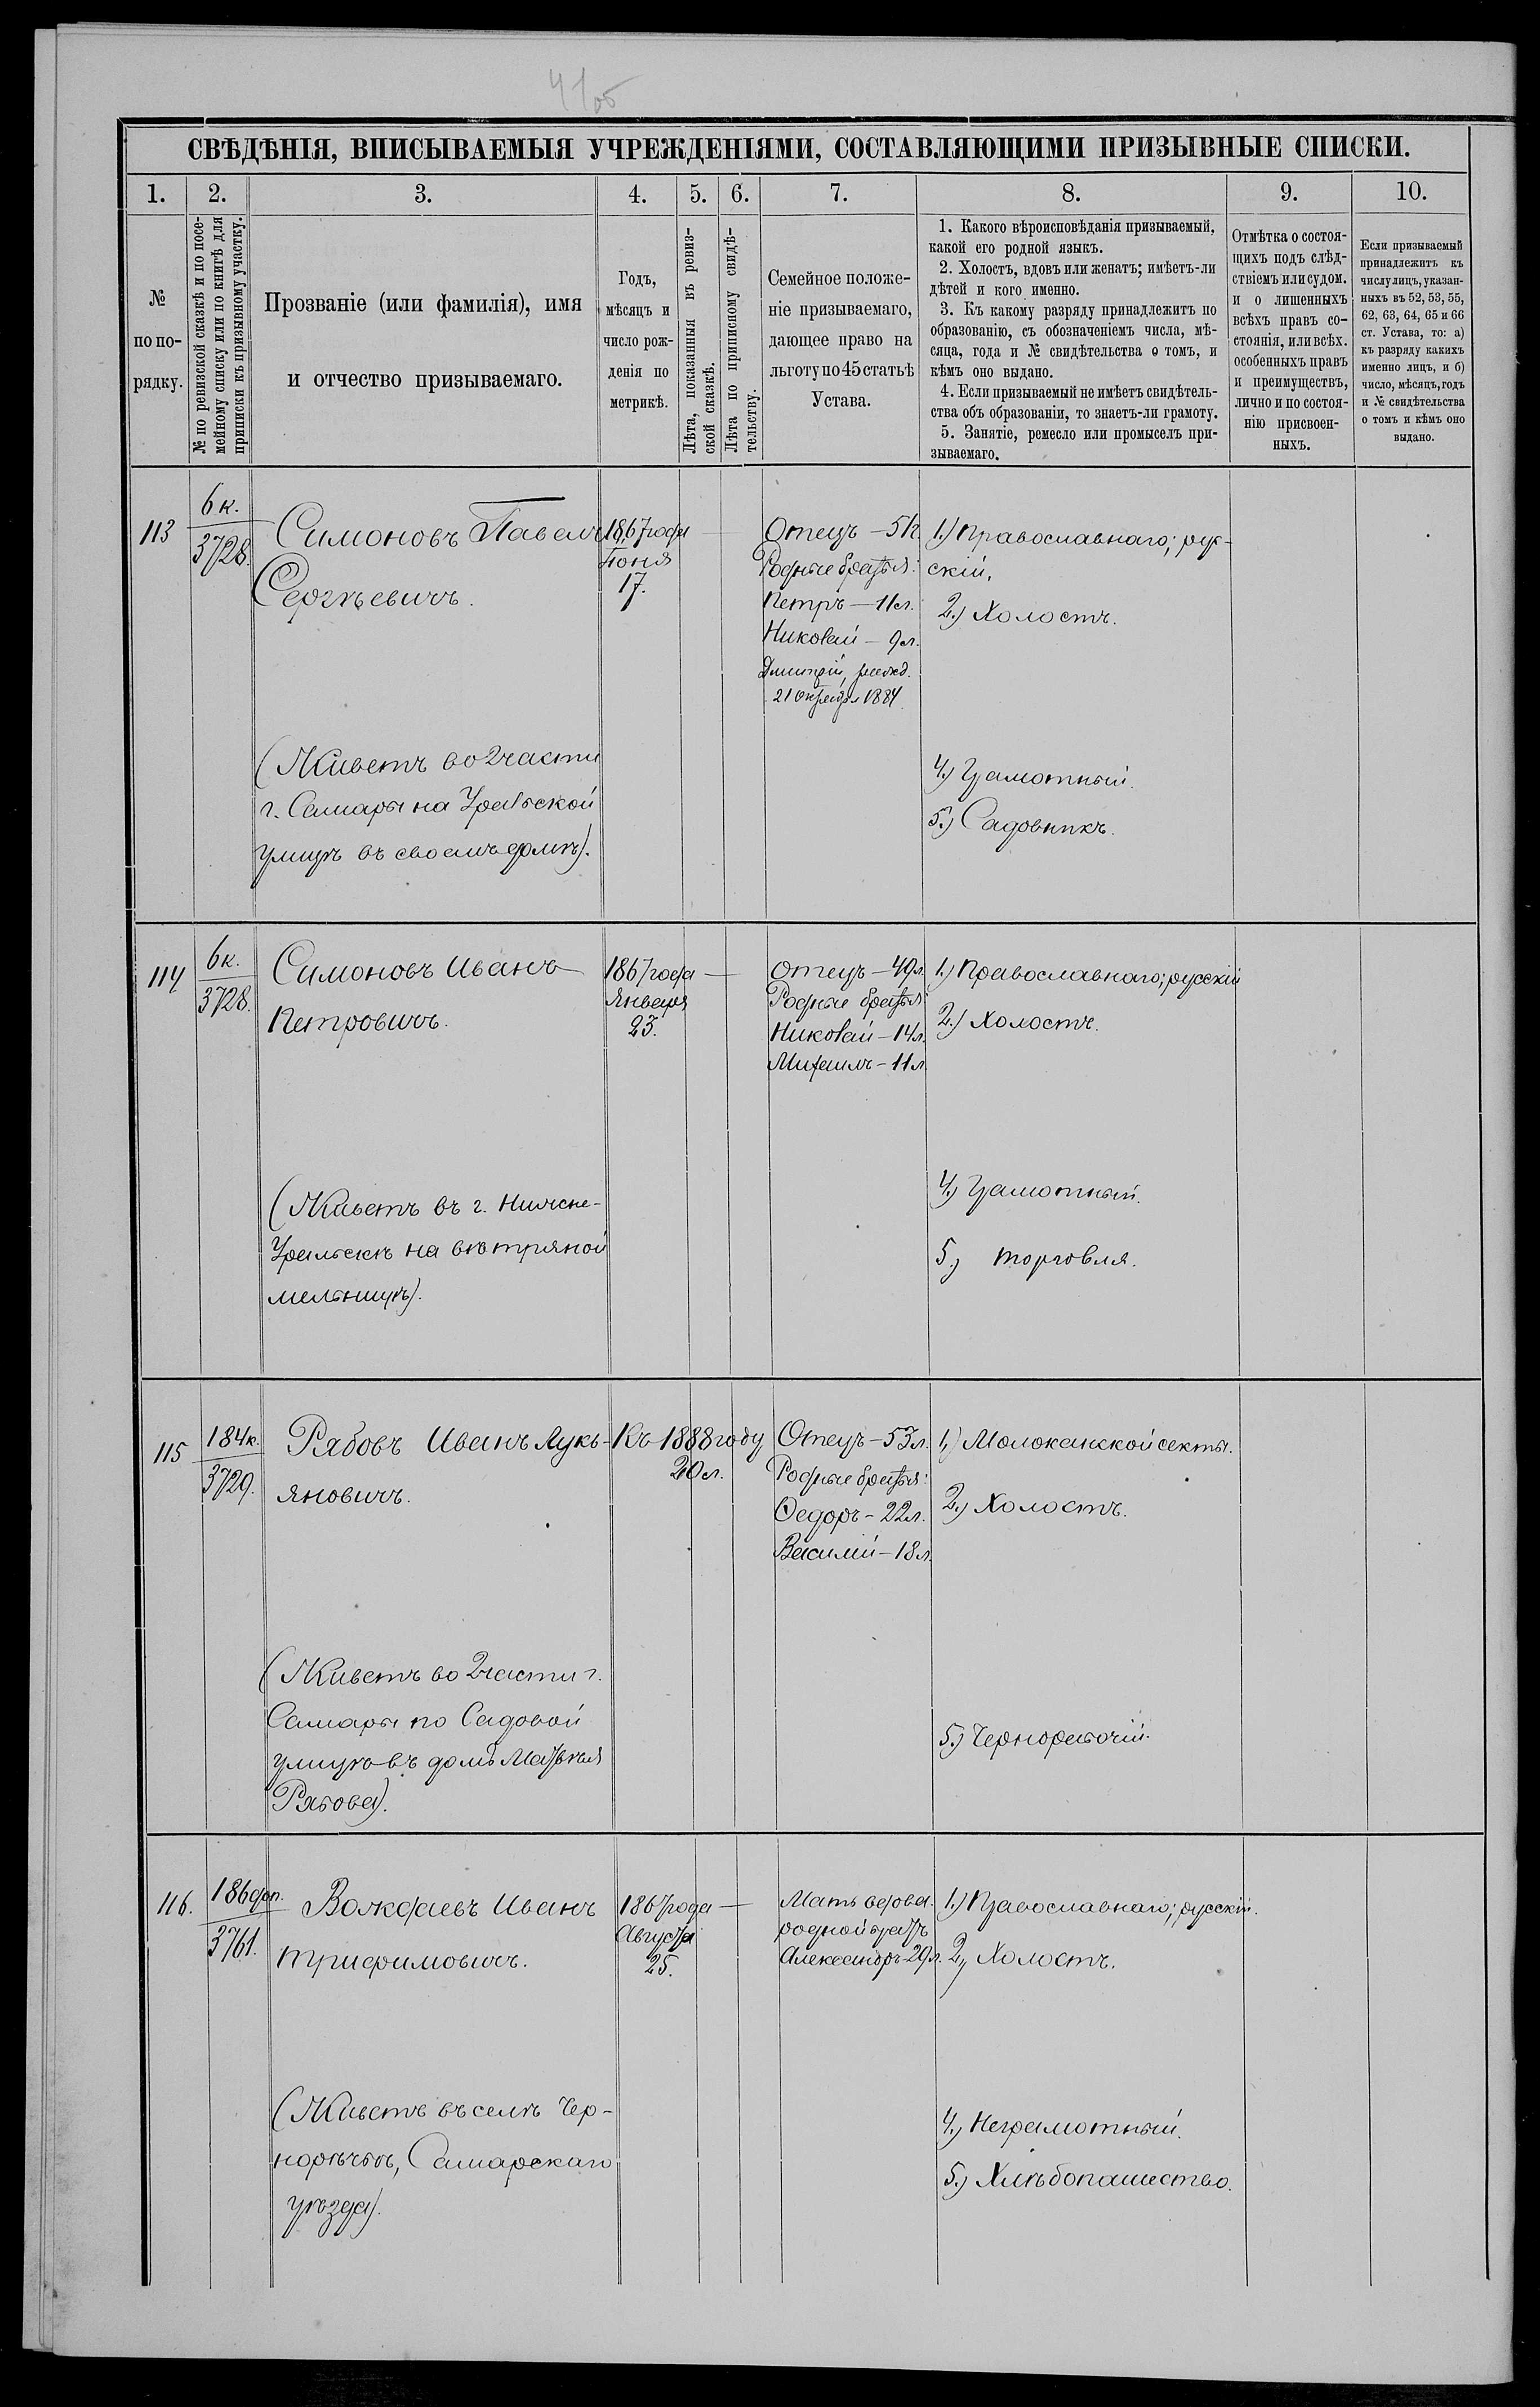 41об
СВѢДѢНІЯ, ВПИСЫВАЕМЫЯ УЧРЕЖДЕНІЯМИ, СОСТАВЛЯЮЩИМИ ПРИЗЫВНЫЕ СПИСКИ.
1.
2.
3.
4.
5.
6.
7.
8.
9.
10.
№
по по-
рядку.
№ по ревизской сказкѣ и по посе-
мейному списку или по книгѣ для
приписки къ призывному участку.
Прозваніе (или фамилія), имя
и отчество призываемаго.
Годъ,
мѣсяцъ и
число рож-
денія по
метрикѣ.
Лѣта, показанныя въ ревиз-
ской сказкѣ.
Лѣта по приписному свидѣ-
тельству.
Семейное положе-
ніе призываемаго,
дающее право на
льготу по 45 статьѣ
Устава.
1. Какого вѣроисповѣданія призываемый,
какой его родной языкъ.
2. Холостъ, вдовъ или женатъ; имѣетъ-ли
дѣтей и кого именно.
3. Къ какому разряду принадлежитъ по
образованію, съ обозначеніемъ числа, мѣ-
сяца, года и № свидѣтельства о томъ, и
кѣмъ оно выдано.
4. Если призываемый не имѣетъ свидѣтель-
ства объ образованіи, то знаетъ-ли грамоту.
5. Занятіе, ремесло или промыселъ при-
зываемаго.
Отмѣтка о состоя-
щихъ подъ слѣд-
ствіемъ или судом.
и о лишенныхъ
всѣхъ правъ со-
стоянія, или всѣх.
особенныхъ правъ
и преимуществъ,
лично и по состоя-
нію присвоен-
ныхъ.
Если призываемый
принадлежитъ къ
числу лицъ, указан-
ныхъ въ 52, 53, 55,
62, 63, 64, 65 и 66
ст. Устава, то: а)
къ разряду какихъ
именно лицъ, и б)
число, мѣсяцъ, годъ
и № свидѣтельства
о томъ и кѣмъ оно
выдано.
113
6 к.
3728.
Симоновъ Павелъ
Сергѣевичъ.
(Живетъ во 2 части
г. Самары на Уральской
улицѣ въ своемъ домѣ).
1867 года
Іюня
17.
Отецъ —
Родные братья:
Петръ — 11 л.
Николай — 9 л.
Дмитрій, рожд.
21 октября 1884
1.) Православнаго; рус-
скій.
2.) Холостъ.
4.) Грамотный.
5.) Садовникъ.
114
6 к.
3728.
Симоновъ Иванъ
Петровичъ.
(Живетъ въ г. Нижне-
Уральскѣ на вѣтряной
мельницѣ).
1867 года
Января
23.
Отецъ — 40 л.
Родные братья:
Николай — 14 л.
Михаилъ — 11 л.
1.) Православнаго; русскій
2.) Холостъ.
4.) Грамотный.
5.) Торговля.
115
184 к.
3729.
Рябовъ Иванъ Лукь-
яновичъ.
(Живетъ во 2 части г.
Самары по Садовой
улицѣ въ домѣ Матвѣя
Рябова).
Къ 1888 году
20 л.
Отецъ — 53 л.
Родные братья:
Ѳедоръ — 22 л.
Василій — 18 л.
1.) Молоканской секты.
2.) Холостъ.
5.) Чернорабочій.
116.
186 доп.
3761.
Вождаевъ Иванъ
Трифимовичъ.
(Живетъ въ селѣ Чер-
норѣчьѣ, Самарскаго
уѣзда).
1867 года
Августа
25.
Мать вдова.
родной братъ
Александръ 29 л.
1.) Православнаго; русскій.
2.) Холостъ.
4.) Неграмотный.
5.) Хлѣбопашество.